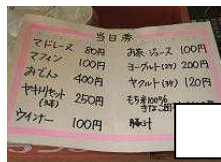 当日券
マドレーヌ 80円
マフィン 100円
おでん 400円
ヤキトリセット 250円
ウインナー 100円
お茶・ジュース 100円
ヨーグルト(3本) 200円
ヤクルト(3本) 120円
もち米100%
豚汁